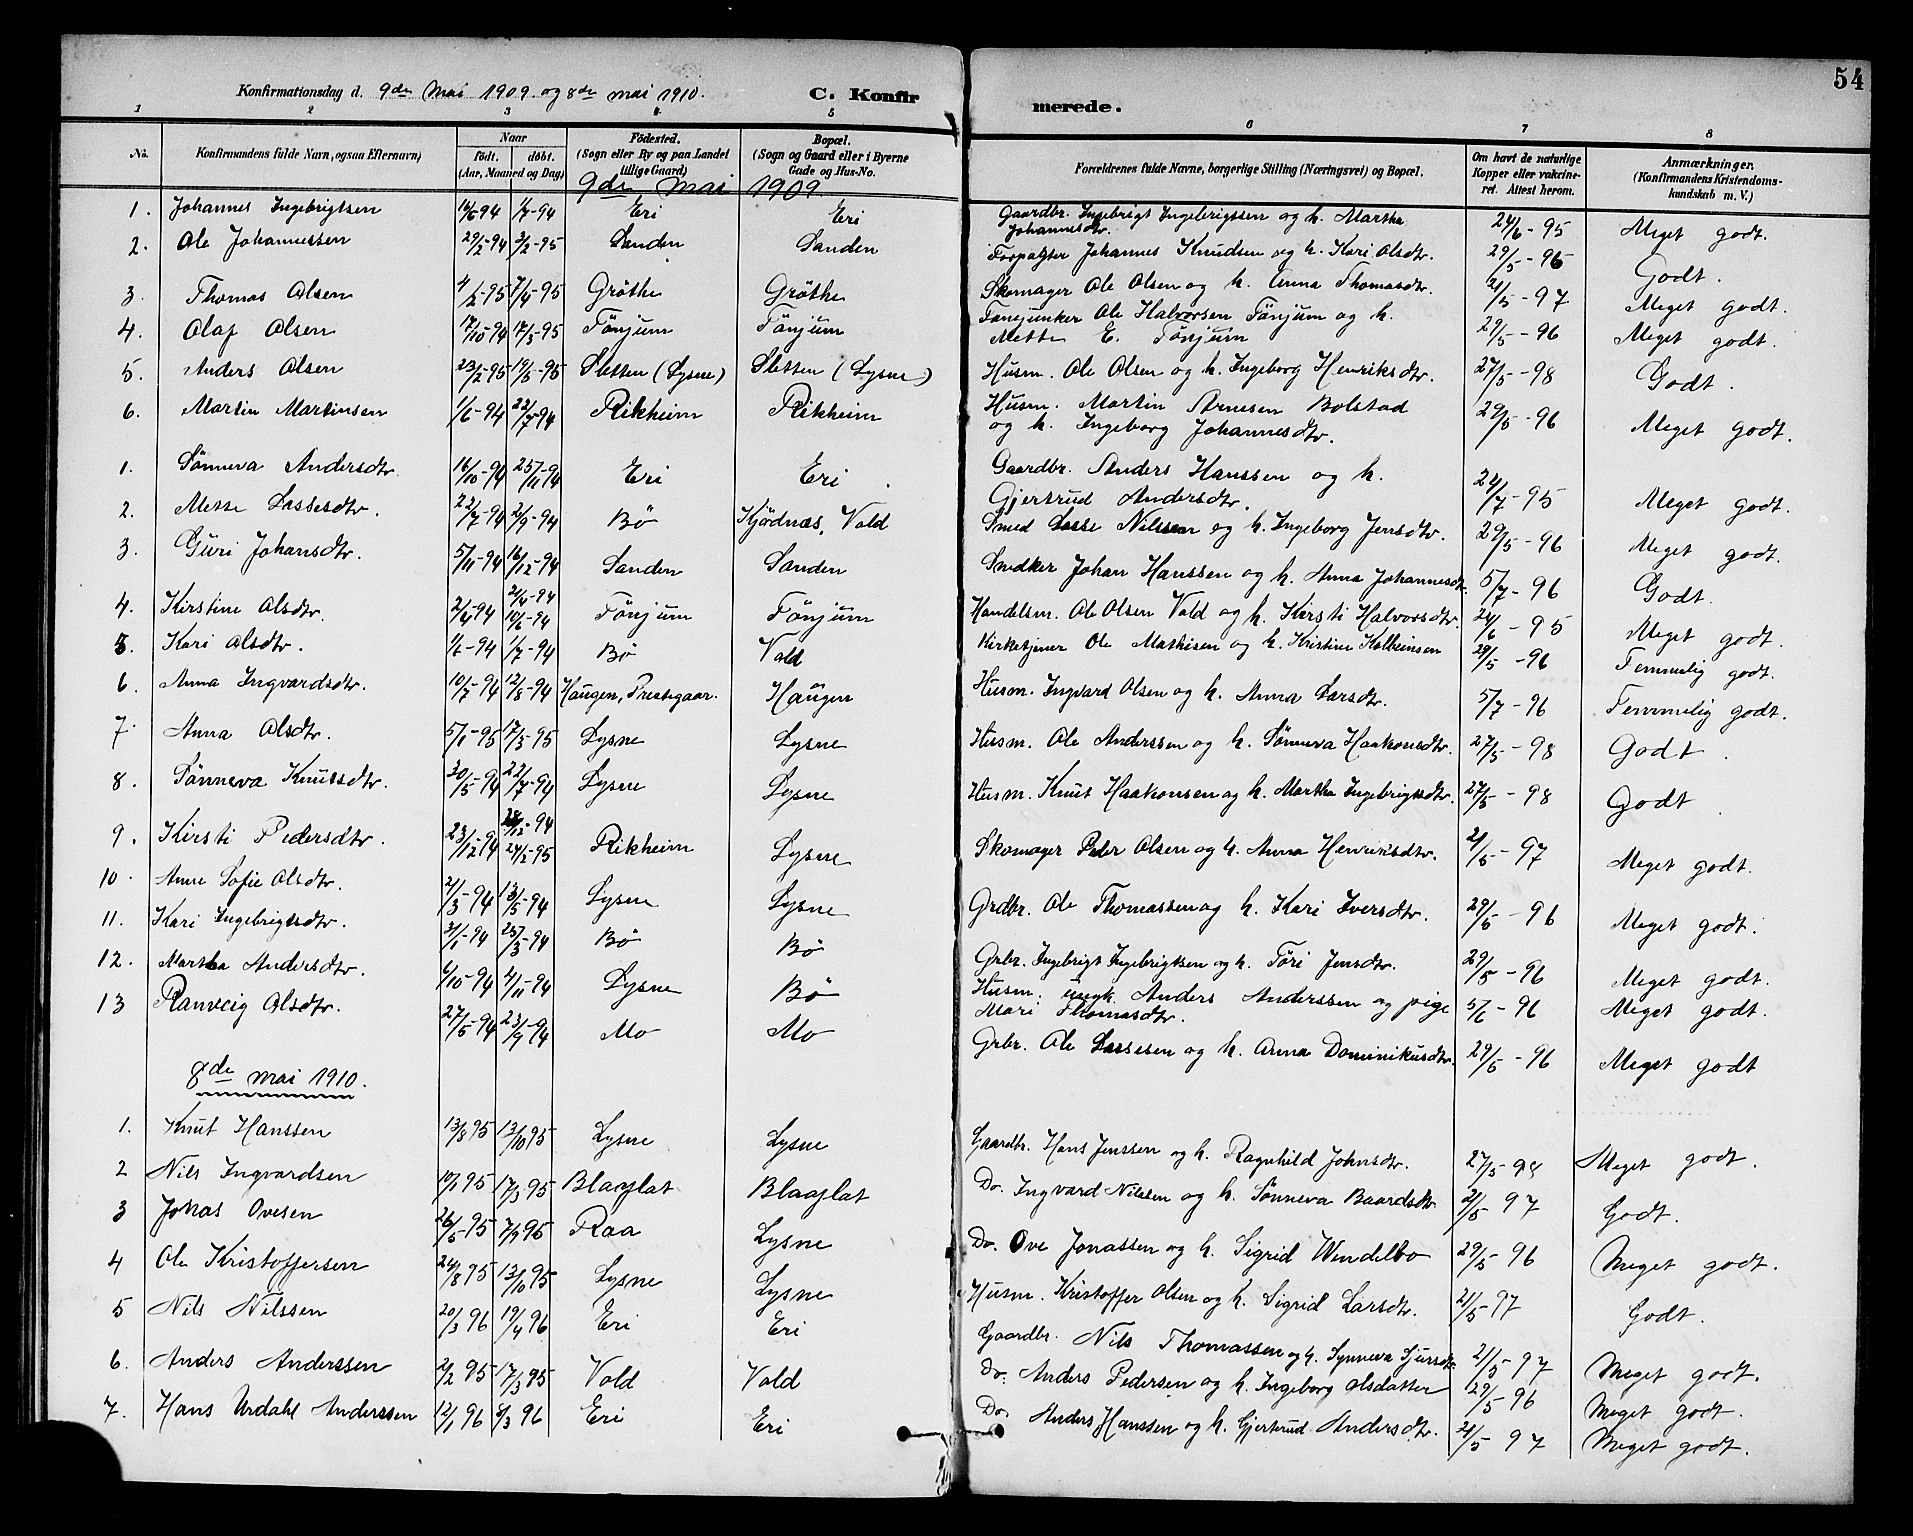 54
Konfirmationsdag d. 9de Mai 1909 og 8de mai 1910.
C. Konfirmerede.
1 2 3 4 5 6 7 8
No. Konfirmandens fulde Navn, ogsaa Efternavn) Naar født. døbt. (Aar, Maaned og Dag) Fødested. (Sogn eller By og paa Landet tillige Gaard) Bopæl. (Sogn og Gaard eller i Byerne Gade og Hus-No. Forældrenes fulde Navne, borgerlige Stilling (Næringsvei) og Bopæl. Om havt de naturlige Kopper eller vakcineret. Attest herom. Anmærkninger. (Konfirmandens Kristendomskundskab m. V.)
9de Mai 1909
1. Johannes Ingebrigtsen 14/6-94 1/7-94 Eri Eri Gaardbr. Ingebrigt Ingebrigtsen og h. Martha Johannesdtr. 24/6-95 Meget godt.
2. Ole Johannessen 3/2-95 Sanden Sanden Forpagter Johannes Knudsen og h. Kari Olsdtr. 29/5-96 Godt.
3. Thomas Olsen 7/4-95 Grøthe Grøthe Skomager Ole Olsen og h. Anna Thomasdtr. 21/5-97 Meget godt.
4. Olaf Olsen 17/10-94 17/3-95 Tönjum Tönjum Fanejunker Ole Halvorsen Tönjum og h. Mette E. Tönjum 29/5-96 Meget godt.
5. Anders Olsen 23/2-95 19/5-95 Sletten (Lysne) Sletten (Lysne) Husm. Ole Olsen og h. Ingeborg Henriksdtr. 27/5-98 Godt.
6. Martin Martinsen 1/6-94 22/7-94 Rikheim Rikheim Husm. Martin Arnesen Bolstad og h. Ingeborg Johannesdtr. 29/5-96 Meget godt.
1. Sönneva Andersdtr. 16/10-94 25/11-94 Eri Eri Gaardbr. Anders Hanssen og h. Gjertrud Andersdtr. 24/7-95 Meget godt.
2. Mette Lassesdtr. 22/7-94 2/9-94 Bö Kjödnæs, Vold Smed Lasse Nilssen og h. Ingeborg Jensdtr. 29/5-96 Meget godt.
3. Guri Johansdtr. 5/11-94 16/12-94 Sanden Sanden Snedker Johan Hanssen og h. Anna Johannesdtr. 5/7-96 Godt.
4. Kirstine Olsdtr. 2/4-94 21/4-94 10/6-94 Tönjum Tönjum Handelsm. Ole Olsen Vold og h. Kirsti Halvorsdtr. 24/6-95 Meget godt.
5. Kari Olsdtr. 1/6-94 1/7-94 Bö Vold Kirketjener Ole Mathisen og h. Kristine Kolbeinsen 29/5-96 Temmelig godt.
6. Anna Ingvardsdtr. 10/7-94 12/8-94 Haugen, Prestegaar. Haugen Husm. Ingvard Olsen og h. Anna Larsdtr. 5/7-96 Temmelig godt.
7. Anna Olsdtr. 5/1-95 17/3-95 Lysne Lysne Husm. Ole Anderssen og h. Sönneva Haakonsdtr. 27/5-98 Godt
8. Sönneva Knutsdtr. 30/5-94 22/7-94 Lysne Lysne Husm. Knut Haakonsen og h. Martha Ingebrigtsdtr. 27/5-98 Godt.
9. Kirsti Pedersdtr. 23/12-94 28/12-94 24/2-95 Rikheim Lysne Skomager Peder Olsen og h. Anna Henriksdtr. 21/5-97 Meget godt.
10. Anne Sofie Olsdtr. 21/3-94 13/5-94 Lysne Lysne Grdbr. Ole Thomassen og h. Kari Iversdtr. 29/5-96 Meget godt.
11. Kari Ingebrigtsdtr. 31/1-94 25/3-94 Bö Bö Grbr. Ingebrigt Ingebrigtsen og h. Töri Jensdtr. 29/5-96 Meget godt.
12. Martha Andersdtr. 6/10-94 4/11-94 Lysne Bö Husm. ungk. Anders Anderssen og pige Mari Thomasdtr. 5/6-96 Meget godt.
13 Ranveig Olsdtr. 27/5-94 23/9-94 Mo Mo Grbr. Ole Lassesen og h. Anna Dominikusdtr. 29/5-96 Meget godt
8de mai 1910.
1. Knut Hanssen 13/8 95 13/10 95 Lysne Lysne Gaardbr. Hans Jenssen og h. Ragnhild Johnsdtr. 27/5-98 Meget godt.
2 Nils Ingvardsen 10/1 95 17/3 95 Blaaflat Blaaflat Do. Ingvard Nilssen og h. Sönneva Baardsdtr. 21/5 97 Godt.
3 Jonas Ovesen 26/5-95 7/9 95 Raa Lysne Do. Ove Jonassen og h. Sigrid Wendelbo 29/5-96 Meget godt.
4 Ole Kristoffersen 24/8 95 13/10 95 Lysne Lysne Husm. Kristoffer Olsen og h. Sigrid Larsdtr. 21/5-97 Godt.
5 Nils Nilssen 20/3 96 19/4 96 Eri Eri Gaardbr. Nils Thomassen og h. Synneva Sjursdtr. 21/5-97 Meget godt.
6. Anders Anderssen 2/2 95 17/3 95 Vold Vold Do. Anders Pedersen og h. Ingeborg Olsdatter 29/5 96 Meget godt.
7. Hans Urdahl Anderssen 12/1 96 8/3 96 Eri Eri Do. Anders Hanssen og h. Gjertrud Andersdtr. 21/5 97 Meget godt.